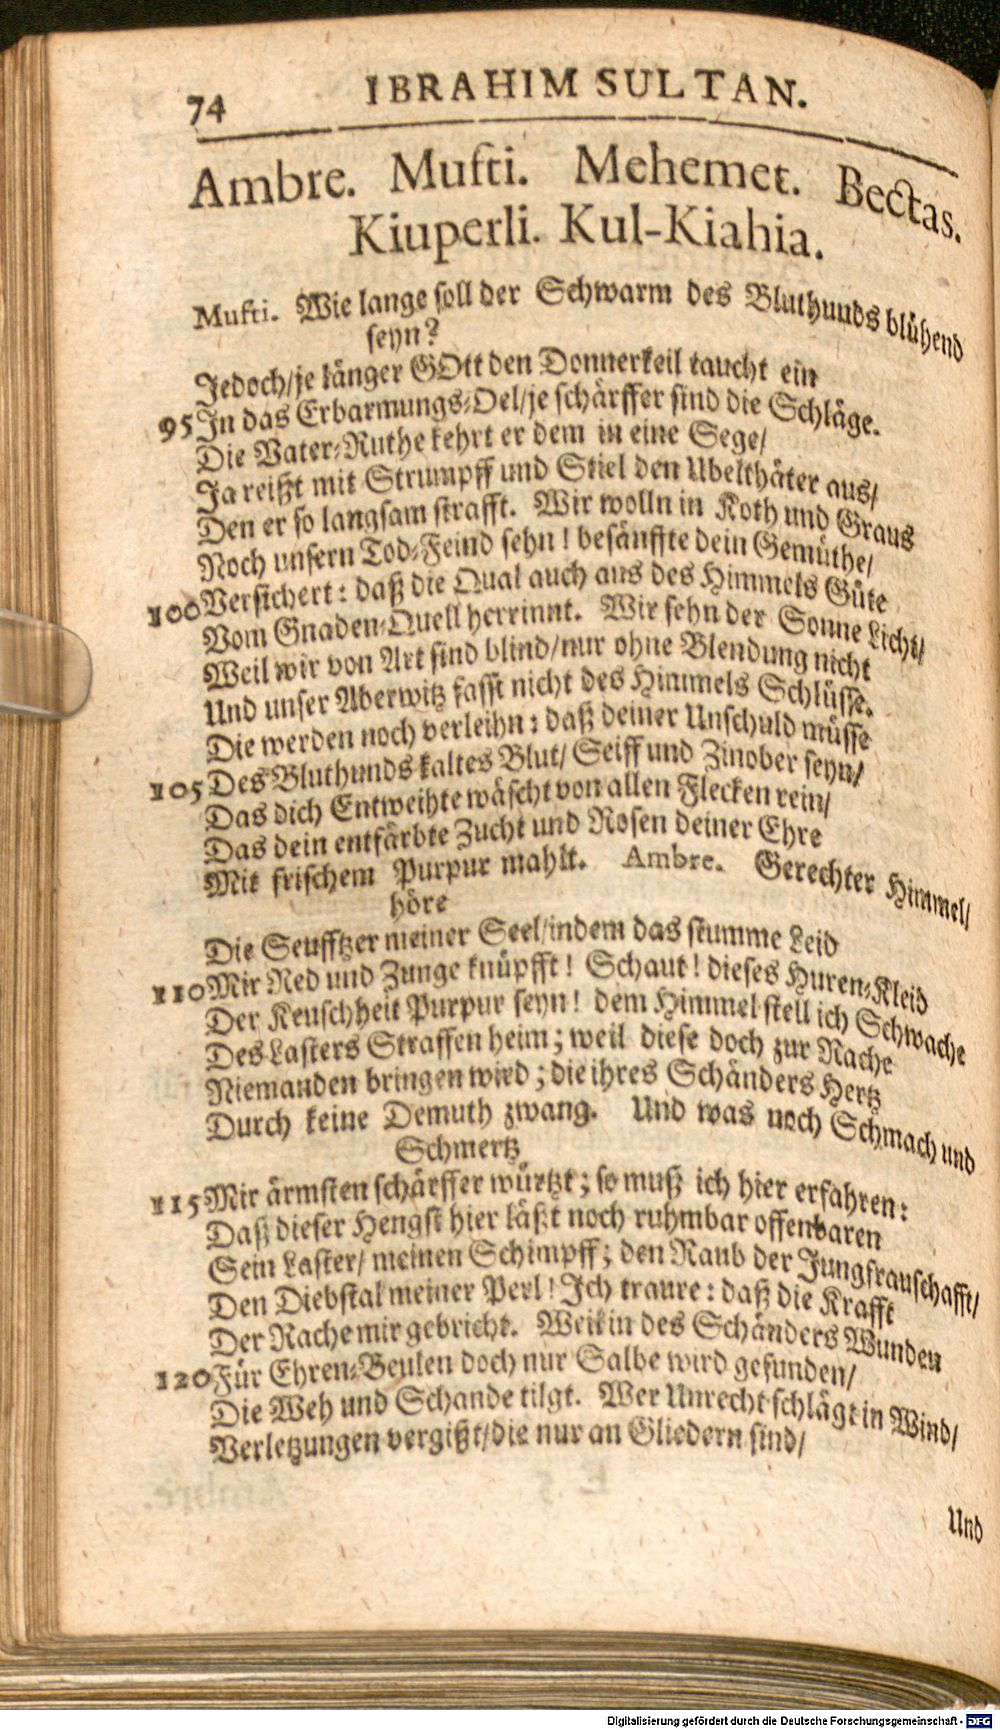 74 IBRAHIM SULTAN.
Ambre. Mufti. Mehemet. Bectas.
Kiuperli. Kul-Kiahia.
Mufti. Wie lange soll der Schwarm des Bluthunds blühend
seyn?
Jedoch/je länger GOtt den Donnerkeil taucht ein
95 In das Erbarmungs-Oel/je schärffer sind die Schläge.
Die Vater-Ruthe kehrt er dem in eine Sege/
Ja reißt mit Strumpff und Stiel den Ubelthäter aus/
Den er so langsam strafft. Wir wolln in Koth und Graus
Noch unsern Tod-Feind sehn! besänffte dein Gemüthe/
100 Versichert: daß die Qual auch aus des Himmels Güte
Vom Gnaden-Quell herrinnt. Wir sehn der Sonne Licht/
Weil wir von Art sind blind/nur ohne Blendung nicht
Und unser Aberwitz fasst nicht des Himmels Schlüsse.
Die werden noch verleihn: daß deiner Unschuld müsse
105 Des Bluthunds kaltes Blut/ Seiff und Zinober seyn/
Das dich Entweihte wäscht von allen Flecken rein/
Das dein entfärbte Zucht und Rosen deiner Ehre
Mit frischem Purpur mahlt. Ambre. Gerechter Himmel/
höre
Die Seufftzer meiner Seel/indem das stumme Leid
110 Mir Red und Zunge knüpfft! Schaut! dieses Huren-Kleid
Der Keuschheit Purpur seyn! dem Himmel stell ich Schwache
Des Lasters Straffen heim; weil diese doch zur Rache
Niemanden bringen wird; die ihres Schänders Hertz
Durch keine Demuth zwang. Und was noch Schmach und
Schmertz
115 Mir ärmsten schärffer würtzt; so muß ich hier erfahren:
Daß dieser Hengst hier läßt noch ruhmbar offenbaren
Sein Laster/ meinen Schimpff; den Raub der Jungfrauschafft/
Den Diebstal meiner Perl! Ich traure: daß die Krafft
Der Rache mir gebricht. Weil in des Schänders Wunden
120 Für Ehren-Beulen doch nur Salbe wird gefunden/
Die Weh und Schande tilgt. Wer Unrecht schlägt in Wind/
Verletzungen vergißt/die nur an Gliedern sind/
Und
Digitalisierung gefördert durch die Deutsche Forschungsgemeinschaft - DFG